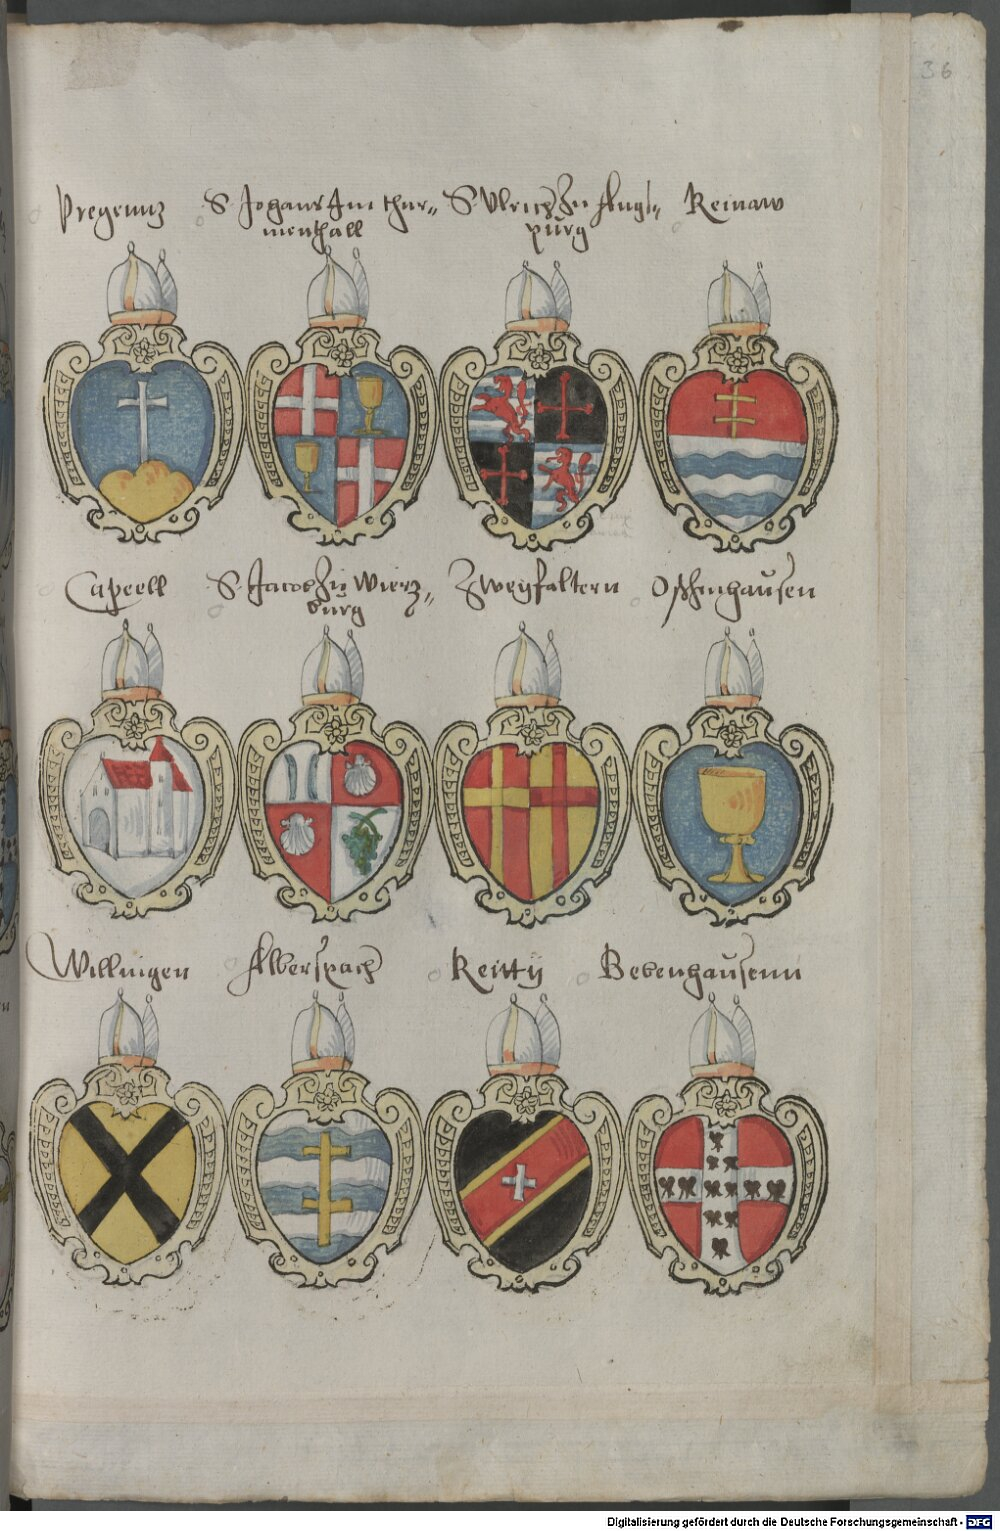 36
Pregenntz
S Johans Im thur„
menthall
S Vlrich Zu Augs„
purg
Reinaw
Capeell
S. Jacob Zu Wierz„
burg
Zweyfaltern
Ochsenhausen
Willingen
Alberspach
Reitty
Bebenhausenn
Digitalisierung gefördert durch die Deutsche Forschungsgemeinschaft - DFG